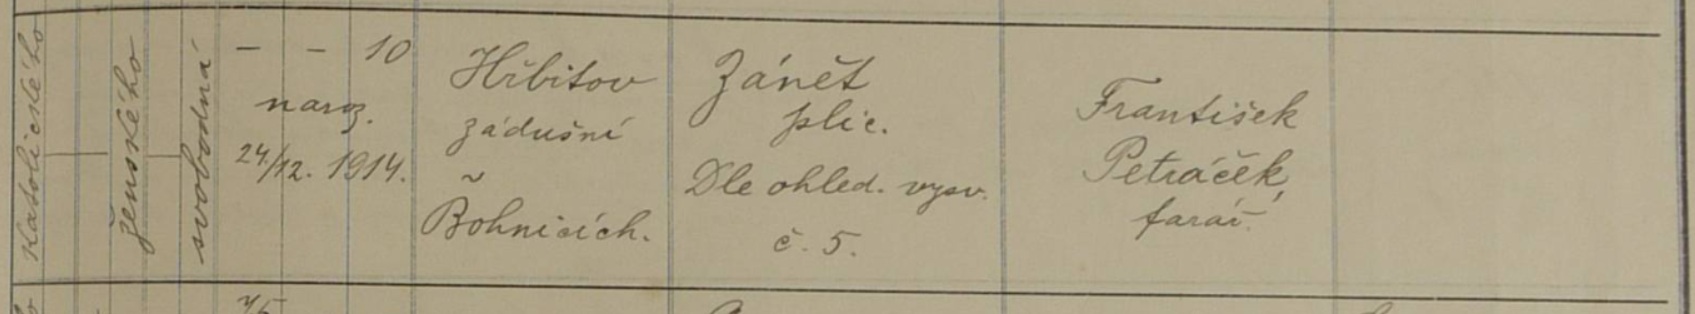 katolického
ženského
svobodná
– – 10
naroz.
24./12. 1914.
Hřbitov
zádušní
v
Bohnicích.
Zánět
plic.
Dle ohled. vysv.
č. 5.
František
Petráček,
farář.